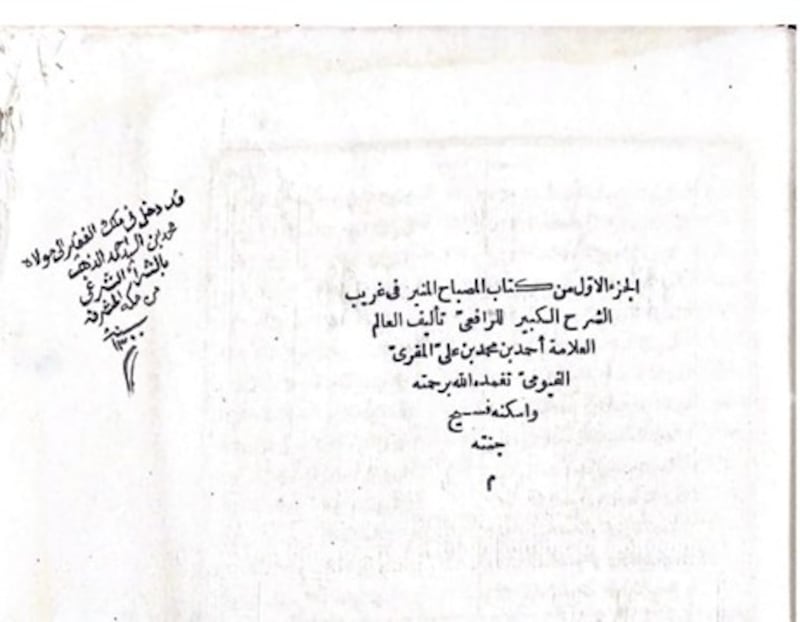 الجزء الاول من كتاب المصباح المنير فى غريب
الشرح الكبير للرافعىّ تأليف العالم
العلامة أحمد بن محمد بن على المقرى
الفيومىّ تغمده الله برحمته
واسكنه فسيح
جنته
م
قد دخل فى ملك الفقير الى مولاه
محمد بن السيد احمد
بالشراء الشرعي
من مكة المشرفة
سنة